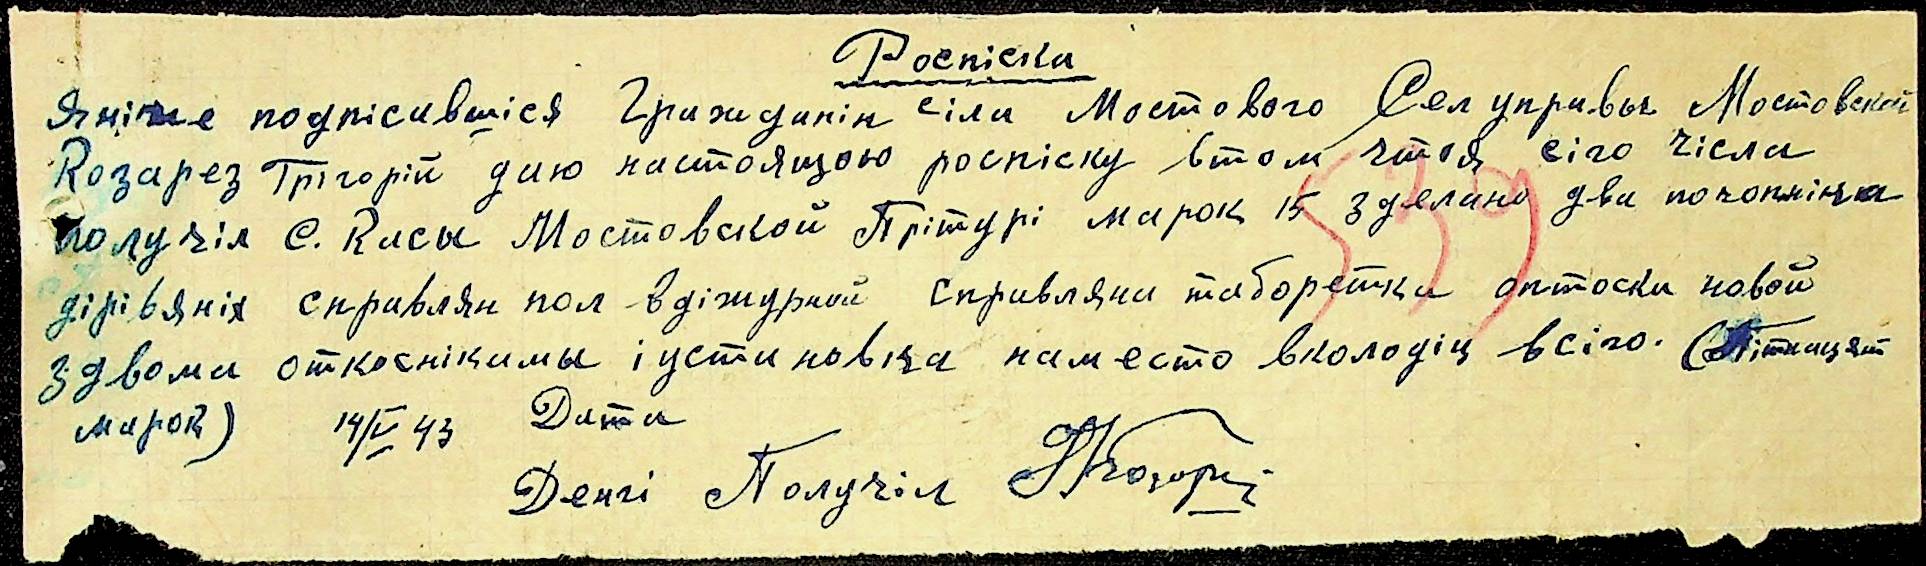 Роспіска
Яніже подпісавшіся Гражданін сіла Мостового Сел управы Мостовской
Козарез Грігорій даю настоящою роспіску втом что я сіго чісла
получіл С. Касы Мостовской Прітурі марок 15 зделано два
дірівяніх справлян пол вдіжурной справляна таборетка оптоски новой
здвома откоснікамы і установка наместо вколодіц всіго. (Пітнацят
марок) 14/V 43 Дата
Денгі Получіл
539